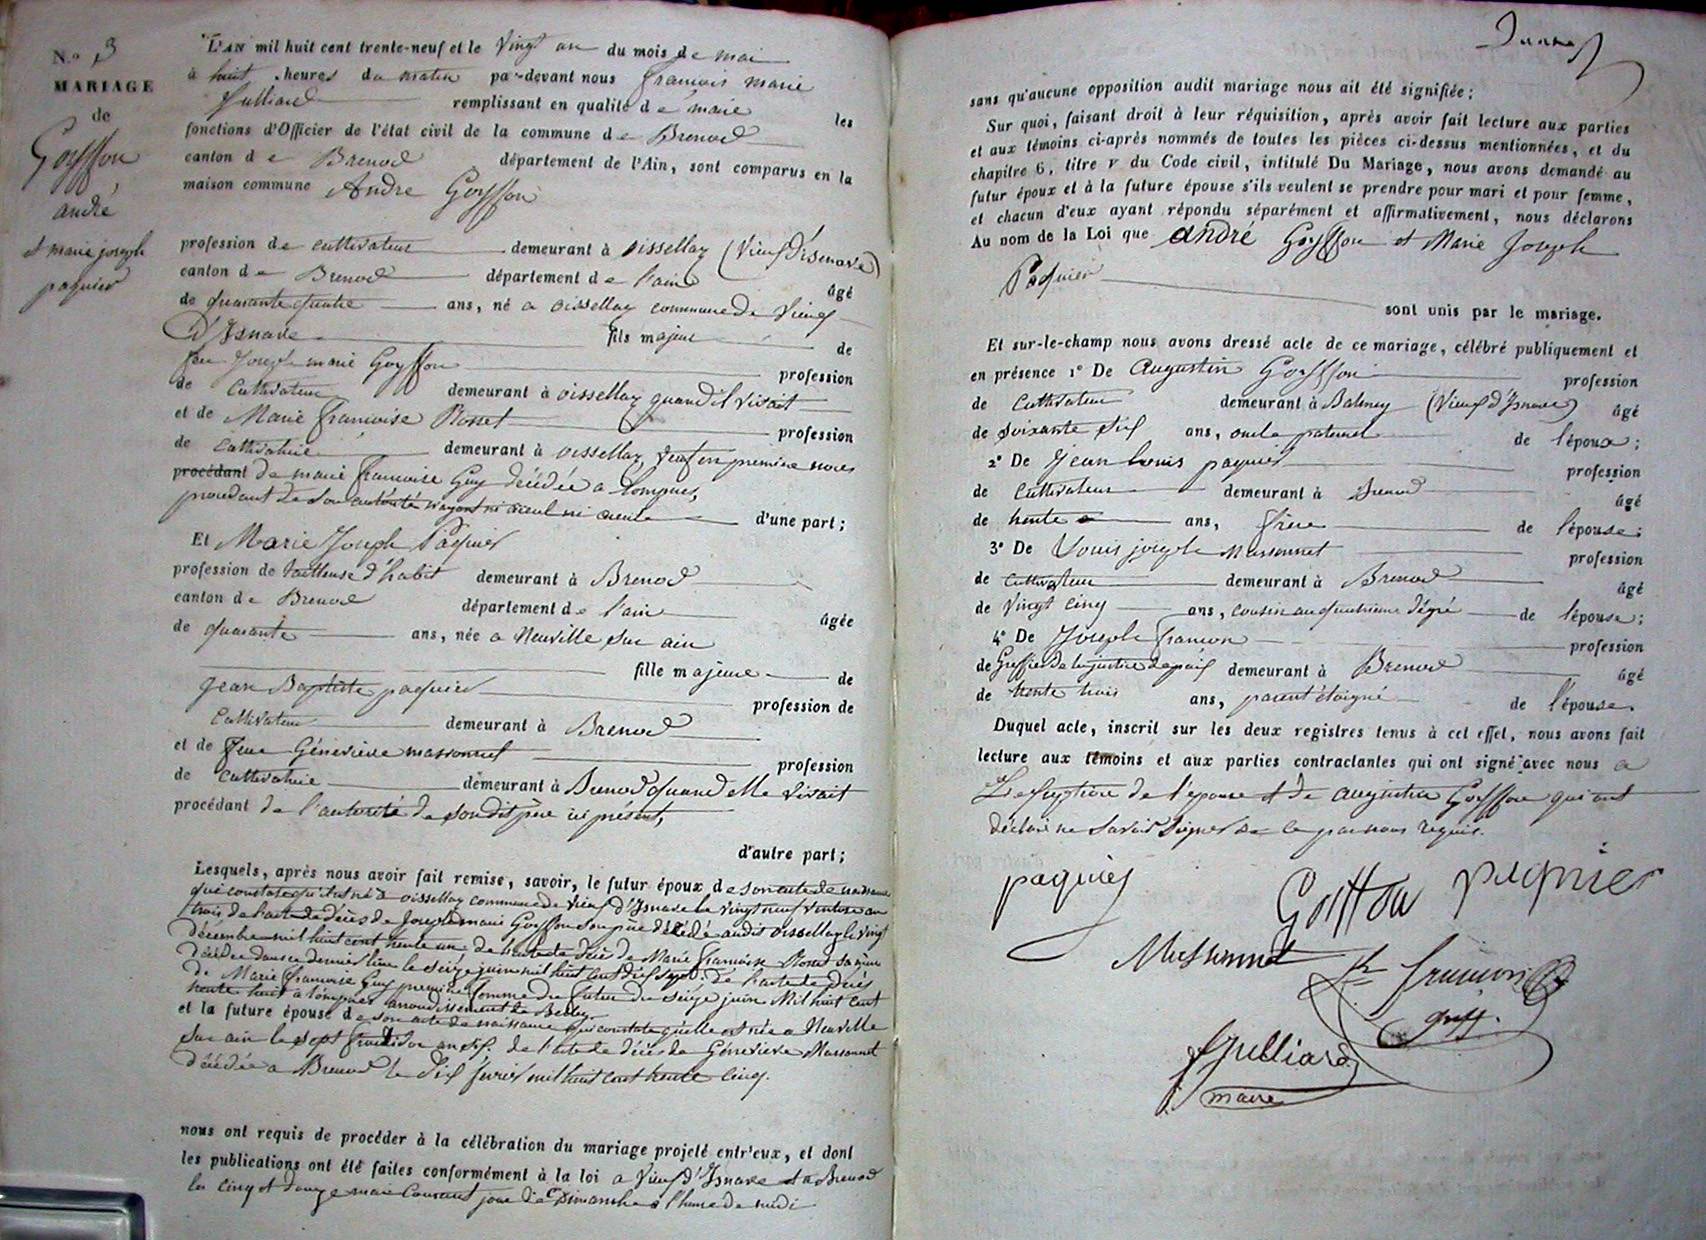 N.o 3
MARIAGE
de
Goyffon
andré
et marie joseph
paquier
L'AN mil huit cent trente-neuf et le vingt un du mois de mai
à huit heures du matin par-devant nous françois marie
Julliard remplissant en qualité de maire les
fonctions d'Officier de l'état civil de la commune de Brenod
canton de Brenod département de l'Ain, sont comparus en la
maison commune André Goyffon
profession de cultivateur demeurant à oissellaz (Vieux d'isenave)
canton de Brenod département de l'ain âgé
de quarante quatre ans, né a oissellaz commune de Vieux
D'Isnave fils majeur de
feu Joseph marie Goyffon profession
de cultivateur demeurant à oissellaz quand il vivait
et de Marie françoise Rosset profession
de cultivatrice demeurant à oissellaz, veuf en premiere noces
procédant de marie françoise Guy décédée a Lompnes,
procedant de son autorité n'ayant ni aieul ni aieule d'une part;
Et Marie Joseph Paquier
profession de tailleuse d'habit demeurant à Brenod
canton de Brenod département de l'ain âgée
de quarante ans, née a Neuville sur ain
fille majeure de
Jean Baptiste paquier profession de
cultivateur demeurant à Brenod
et de feue Génevieve massonnet profession
de cultivatrice demeurant à Brenod quand elle vivait
procédant de l'autorité de son dit père ici présent,
d'autre part;
Lesquels, après nous avoir fait remise, savoir, le futur époux de son acte de naissance
qui constate qu'il est né à oissellaz commune de Vieux d'Isnave le vingt neuf ventose an
trois de l'acte de décès de Joseph marie Goyffon son père décédé audit oissellaz le vingt
décembre mil huit cent trente un, de l'acte de décès de Marie françoise Rosset sa mère
décédée dans ce dernier lieu le seize juin mil huit cent dix sept. de l'acte de décès
de Marie françoise Guy premiere femme du futur du seize juin mil huit cent
trente huit a lompnes arrondissement de Belley.
et la future épouse de son acte de naissance qui constate qu'elle est née a Neuville
sur ain le sept fructidor an six. de l'acte de décès de Génevieve Massonnet
décédée a Brenod le dix fevrier mil huit cent trente cinq.
nous ont requis de procéder à la célébration du mariage projeté entr'eux, et dont
les publications ont été faites conformément à la loi a Vieux d'Isnave et a Brenod
les cinq et douze mai courant jour de Dimanche a l'heure de midi
sans qu'aucune opposition audit mariage nous ait été signifiée;
Sur quoi, faisant droit à leur réquisition, après avoir fait lecture aux parties
et aux témoins ci-après nommés de toutes les pièces ci-dessus mentionnées, et du
chapitre 6, titre V du Code civil, intitulé Du Mariage, nous avons demandé au
futur époux et à la future épouse s'ils veulent se prendre pour mari et pour femme,
et chacun d'eux ayant répondu séparément et affirmativement, nous déclarons
Au nom de la Loi que André Goyffon et Marie Joseph
Paquier
sont unis par le mariage.
Et sur-le-champ nous avons dressé acte de ce mariage, célébré publiquement et
en présence 1° De Augustin Goyffon profession
de Cultivateur demeurant à Balmey (Vieux d'Isnave) âgé
de soixante six ans, oncle paternel de l'époux;
2° De Jean Louis paquier profession
de cultivateur demeurant à Brenod âgé
de trente ans, frère de l'épouse;
3° De Louis joseph Massonnet profession
de cultivateur demeurant à Brenod âgé
de Vingt cinq ans, cousin au quatrieme dégré de l'épouse;
4° De Joseph françon profession
de Greffier de la justice de paix demeurant à Brenod âgé
de trente trois ans, parent éloigné de l'épouse.
Duquel acte, inscrit sur les deux registres tenus à cet effet, nous avons fait
lecture aux témoins et aux parties contractantes qui ont signé avec nous a
L'exception de l'epouse et de augustin Goyffon qui ont
déclaré ne savoir signer de ce par nous requis.
paquier
Goiffon
paquier
Massonnet
françon
greff.
Julliard
maire